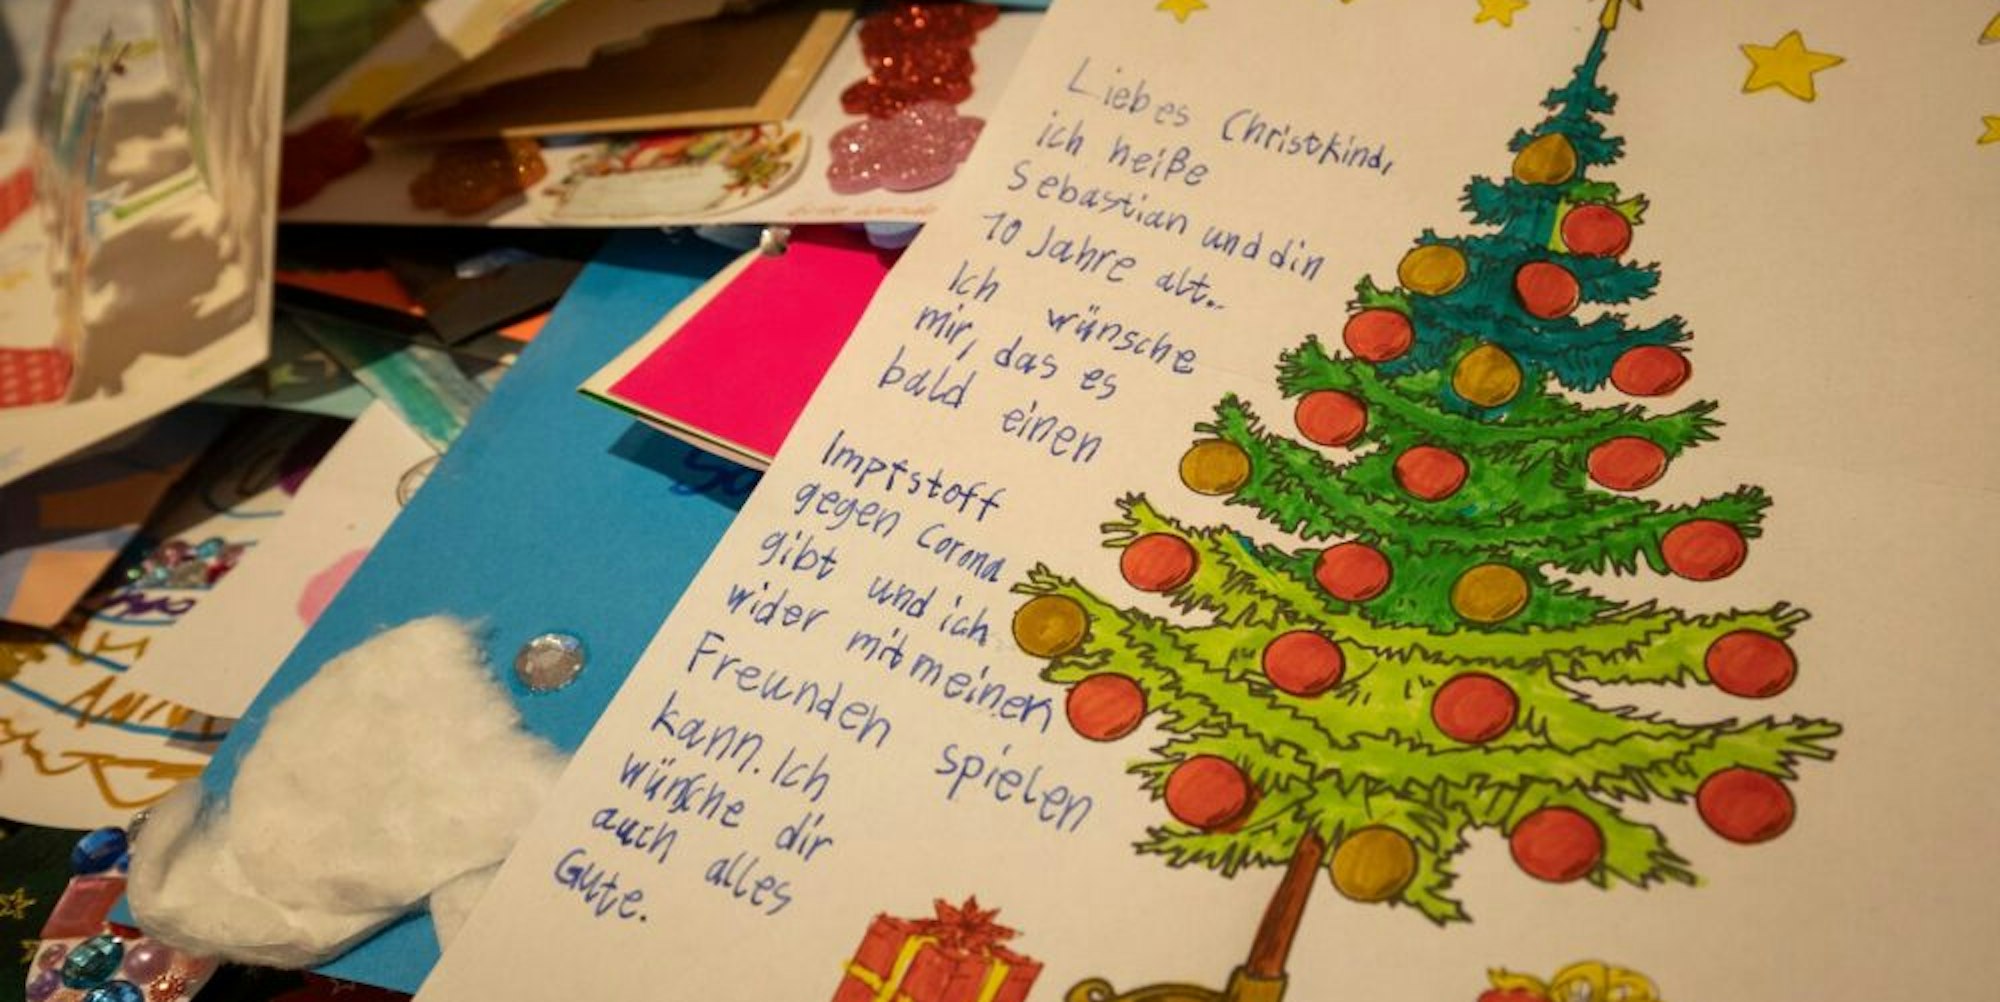 Liebes Christkind,
ich heiße
Sebastian und din
10 Jahre alt..
Ich wünsche
mir, das es
bald einen
Impfstoff
gegen Corona
gibt und ich
wider mit meinen
Freunden spielen
kann. Ich
wünsche dir
auch alles
Gute.